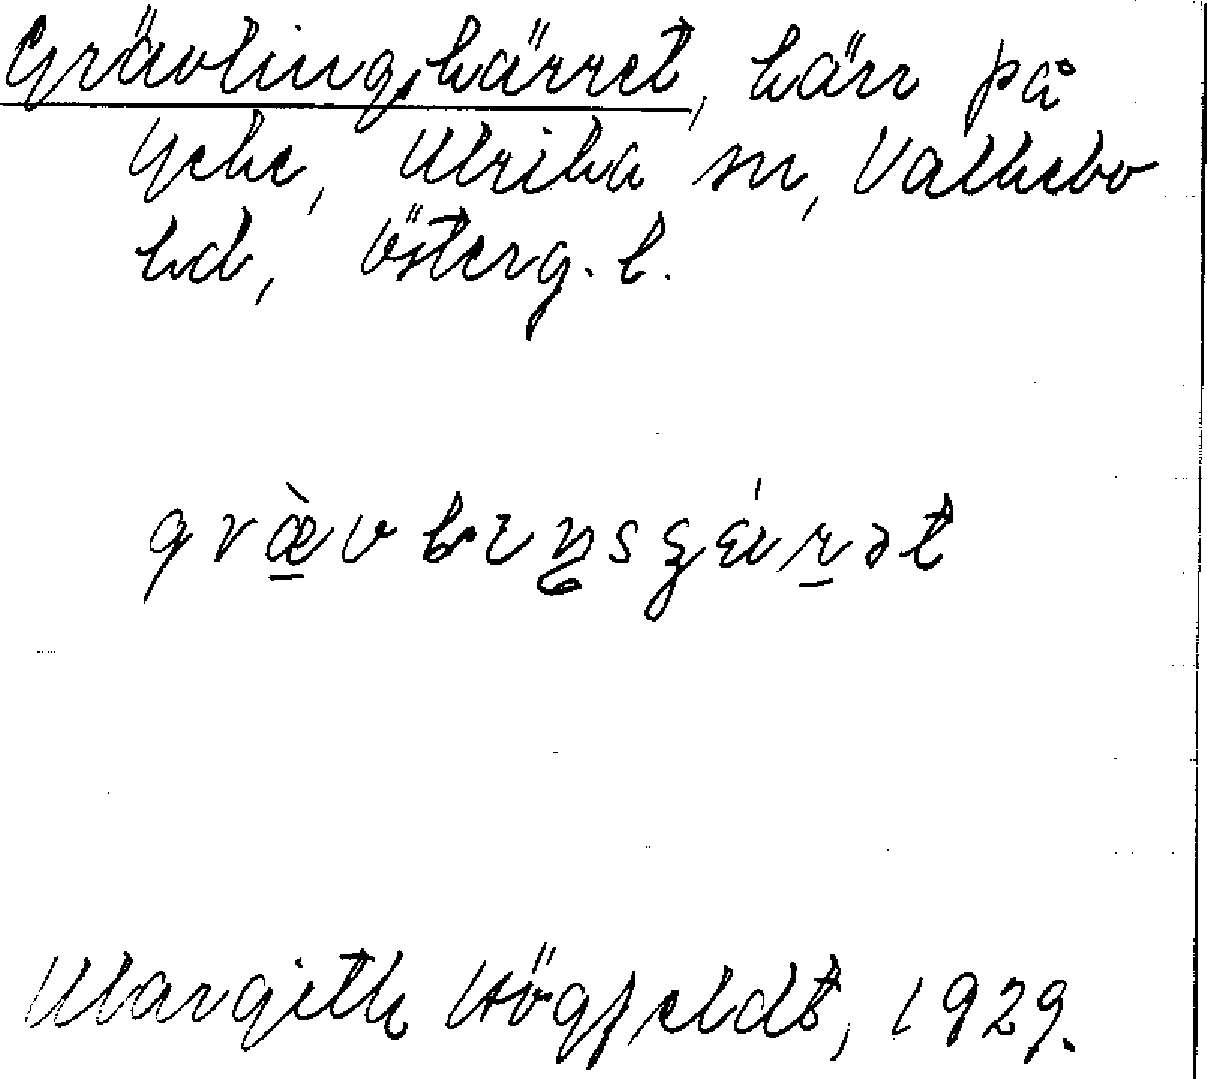 Grävlingskärret, kärr på
Ycke, Ulrika sn, Valkebo
hd, Österg. l.
Margith Högfeldt, 1929.